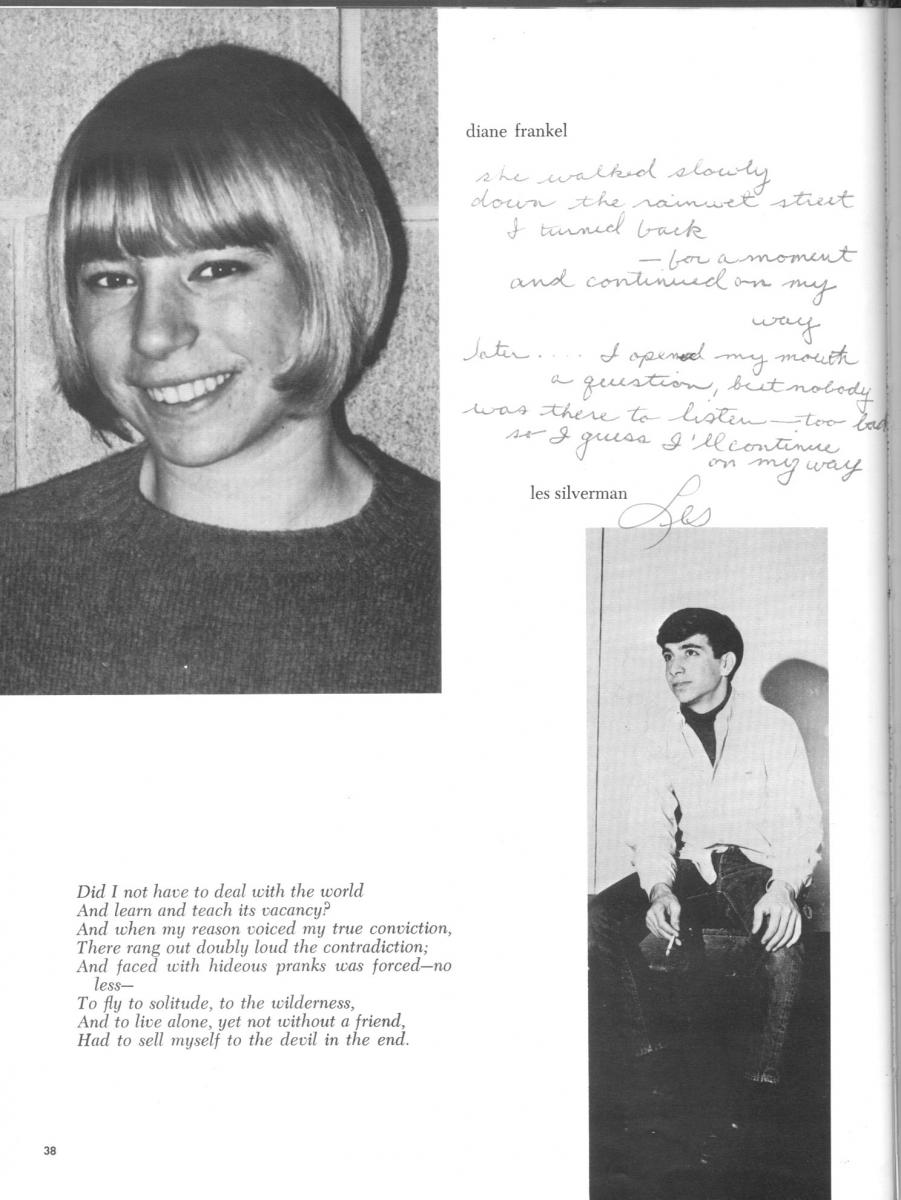 diane frankel
she walked slowly
down the rainwet street
I turned back
— for a moment
and continued on my
way
later . . . . I opened my mouth
a question, but nobody
was there to listen — too bad
so I guess I'll continue
on my way
les silverman
Les
Did I not have to deal with the world
And learn and teach its vacancy?
And when my reason voiced my true conviction,
There rang out doubly loud the contradiction;
And faced with hideous pranks was forced—no
less—
To fly to solitude, to the wilderness,
And to live alone, yet not without a friend,
Had to sell myself to the devil in the end.
38